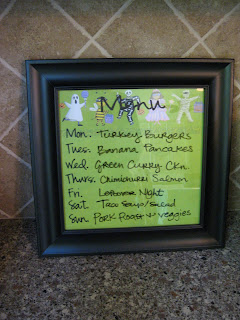 Menu
Mon. Turkey Burgers
Tues. Banana Pancakes
Wed. Green Curry Ckn
Thurs. Chimichurri Salmon
Fri. Leftover Night
Sat. Taco Soup/Salad
Sun. Pork Roast + Veggies